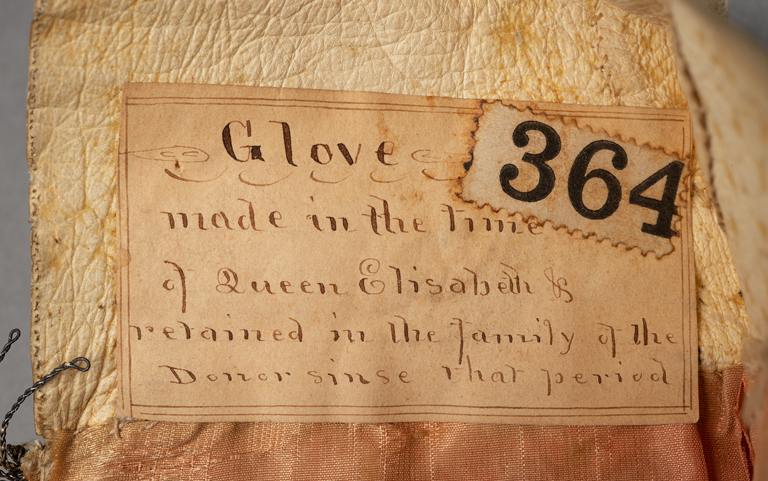 Glove
364
made in the time
of Queen Elisabeth &
retained in the family of the
Donor sinse that period